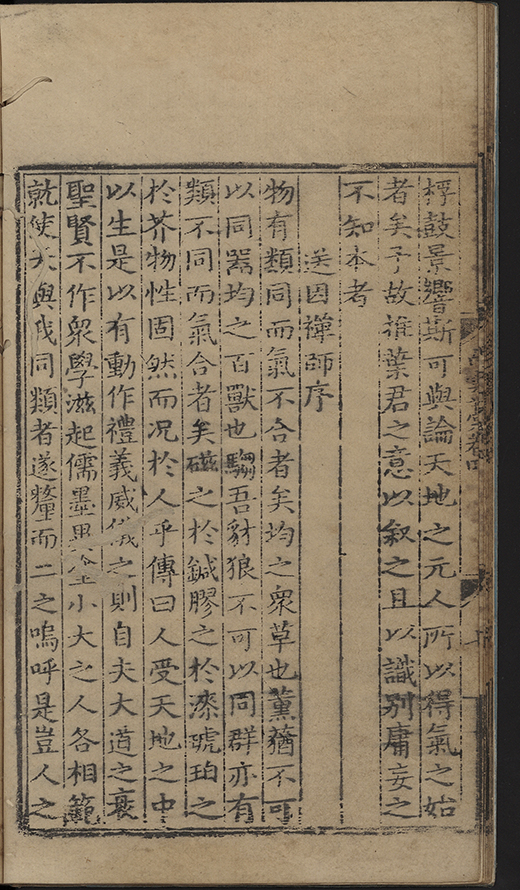 桴鼓景響斯可與論天地之元人所以得氣之始
者矣予故推葉君之意以叙之且以識别庸妄之
不知本者
送因禪師序
物有類同而氣不合者矣均之衆草也薰蕕不可
以同器均之百獸也騶吾豺狼不可以同群亦有
類不同而氣合者矣磁之於鍼膠之於漆琥珀之
於芥物性固然而况於人乎傳曰人受天地之中
以生是以有動作禮義威儀之則自夫大道之衰
聖賢不作衆學滋起儒墨異小大之人各相範
就使夫與我同類者遂釐而二之嗚呼是豈人之